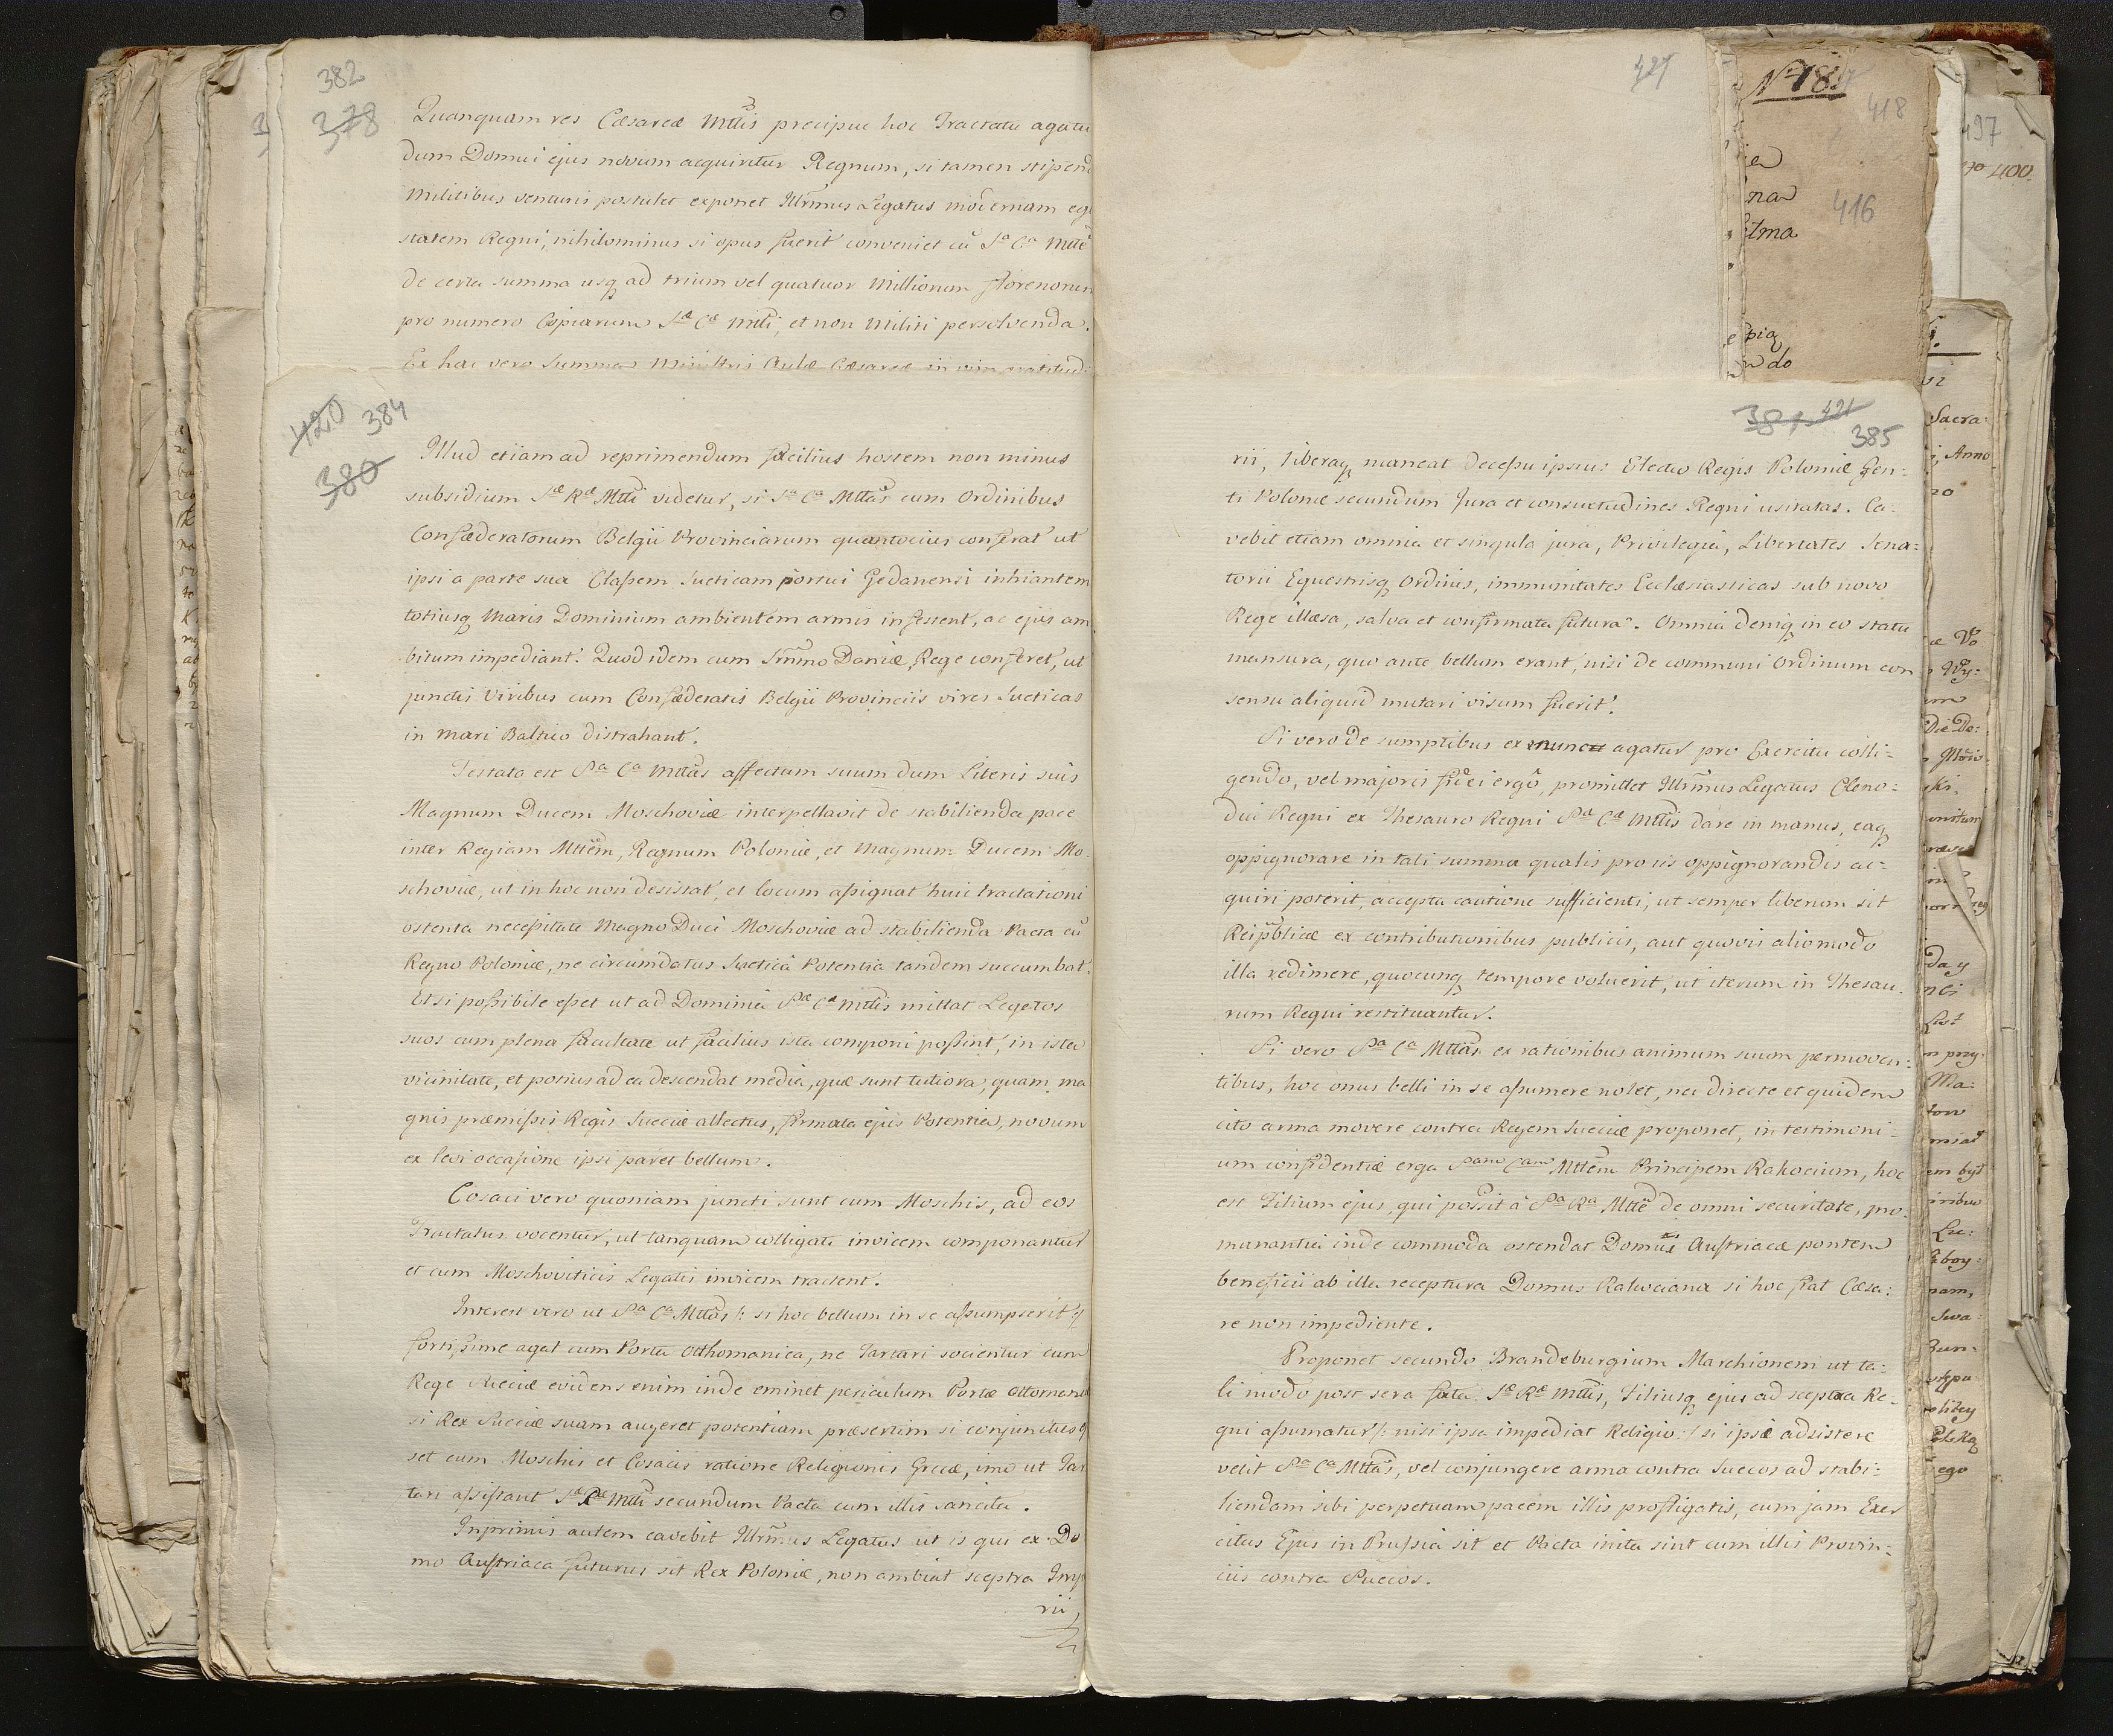 382
378
Quanquam res Cæsareæ Mttis precipue hoc Tractatu agatu
dum Domui ejus novum acquiritur Regnum, si tamen stipend
Militibus venturis postulet exponet Illrmus Legatus modernam ege
statem Regni, nihilominus si opus fuerit conveniet cũ Sa Ca Mtte
de certa summa usq ad trium vel quatuor Millionum florenorum
pro numero Copiarum Sæ Cæ Mtti, et non Militi persolvenda.
Ex hac vero Summa Ministris Aulæ Cæsareæ in vim gratitud:
420 384
380
Illud etiam ad reprimendum facilius hostem non minus
subsidium Sæ Ræ Mtti videtur, si Sa Ca Mttas cum Ordinibus
Confæderatorum Belgii Provinciarum quantocius conferat ut
ipsi a parte sua Classem Sueticam portui Gedanensi inhiantem
totiusq Maris Dominium ambientem armis infestent, ac ejus am
bitum impediant. Quod idem cum Srmo Daniæ Rege conferet, ut
junctis Viribus cum Confæderatis Belgii Provinciis vires Sueticas
in Mari Baltico distrahant.
Testata est Sa Ca Mttas affectum suum dum Literis suis
Magnum Ducem Moschoviæ interpellavit de stabilienda pace
inter Regiam Mttem, Regnum Poloniæ, et Magnum Ducem Mo-
schoviæ, ut in hoc non desistat, et locum assignat huic tractationi
ostenta necessitate Magno Duci Moschoviæ ad stabilienda Pacta cũ
Regno Poloniæ, ne circumdatus Suetica Potentia tandem succumbat.
Et si possibile esset ut ad Dominia Sæ Cæ Mttis mittat Legatos
suos cum plena facultate ut facilius ista componi possint, in ista
vicinitate, et potius ad ea descendat media, quæ sunt tutiora, quam ma
gnis præmissis Regis Sueciæ allectus, firmata ejus Potentia, novum
ex levi occasione ipsi paret bellum.
Cosaci vero quoniam juncti sunt cum Moschis, ad eos
Tractatus vocentur, ut tanquam colligati invicem componantur
et cum Moschoviticis Legatis invicem tractent.
Interest vero ut Sa Ca Mttas /: si hoc bellum in se assumpserit :/
fortissime agat cum Porta Otthomanica, ne Tartari socientur cum
Rege Sueciæ evidens enim inde eminet periculum Portæ Ottomanæ
si Rex Sueciæ suam augeret potentiam præsertim si conjunctus es
set cum Moschis et Cosacis ratione Religionis Grecæ, imo ut Tar
tari assistant Sæ Ræ Mtti secundum Pacta cum illis sancita.
Inprimis autem cavebit Illrmus Legatus ut is qui ex Do
mo Austriaca futurus sit Rex Poloniæ, non ambiat sceptra Imp
rii,
427
No 18.
418
416
ia
na
etma
pią
do
497
400.
381. 421
385
rii, liberaq maneat decessu ipsius Electio Regis Poloniæ Gen-
ti Polonæ secundum Jura et consuetudines Regni usitatas. Ca-
vebit etiam omnia et singula jura, Privilegia, Libertates Sena=
torii Equestrisq Ordinis, immunitates Ecclesiasticas sub novo
Rege illæsa, salva et confirmata futura. Omnia deniq in eo statu
mansura, quo ante bellum erant, nisi de communi Ordinum con
sensu aliquid mutari visum fuerit.
Si vero de sumptibus ex nunc agatur pro Exercitu colli-
gendo, vel majoris fidei ergo, promittet Illrmus Legatus Cleno=
dia Regni ex Thesauro Regni Sæ Cæ Mttis dare in manus, eaq
oppignorare in tali summa qualis pro iis oppignorandis ac=
quiri poterit, accepta cautione sufficienti, ut semper liberum sit
Reipblicæ ex contributionibus publicis, aut quovis alio modo
illa redimere, quocunq tempore voluerit, ut iterum in Thesau-
rum Regni restituantur.
Si vero Sa Ca Mttas ex rationibus animum suum permoven:
tibus, hoc onus belli in se assumere nolet, nec directe et quidem
cito arma movere contra Regem Sueciæ proponet, in testimoni-
um confidentiæ erga Sam Cam Mttem Principem Rakocium, hoc
est Filium ejus, qui possit a Sa Ra Mtte de omni securitate, pro-
manantia inde commoda ostendat Domus Austriacæ pontem
beneficii ab illa receptura Domus Rakociana si hoc fiat Cæsa:
re non impediente.
Proponet secundo Brandeburgium Marchionem ut ta:
li modo post sera fata Sæ Ræ Mttis, Filiusq ejus ad sceptra Re-
gni assumatur /: nisi ipsa impediat Religio :/ si ipsæ adsistere
velit Sa Ca Mttas, vel conjungere arma contra Suecos ad stabi=
liendam sibi perpetuam pacem illis profligatis, cum jam Exer
citus Ejus in Prussia sit et Pacta inita sint cum illis Provin=
ciis contra Suecos.
Sacra:
Anno